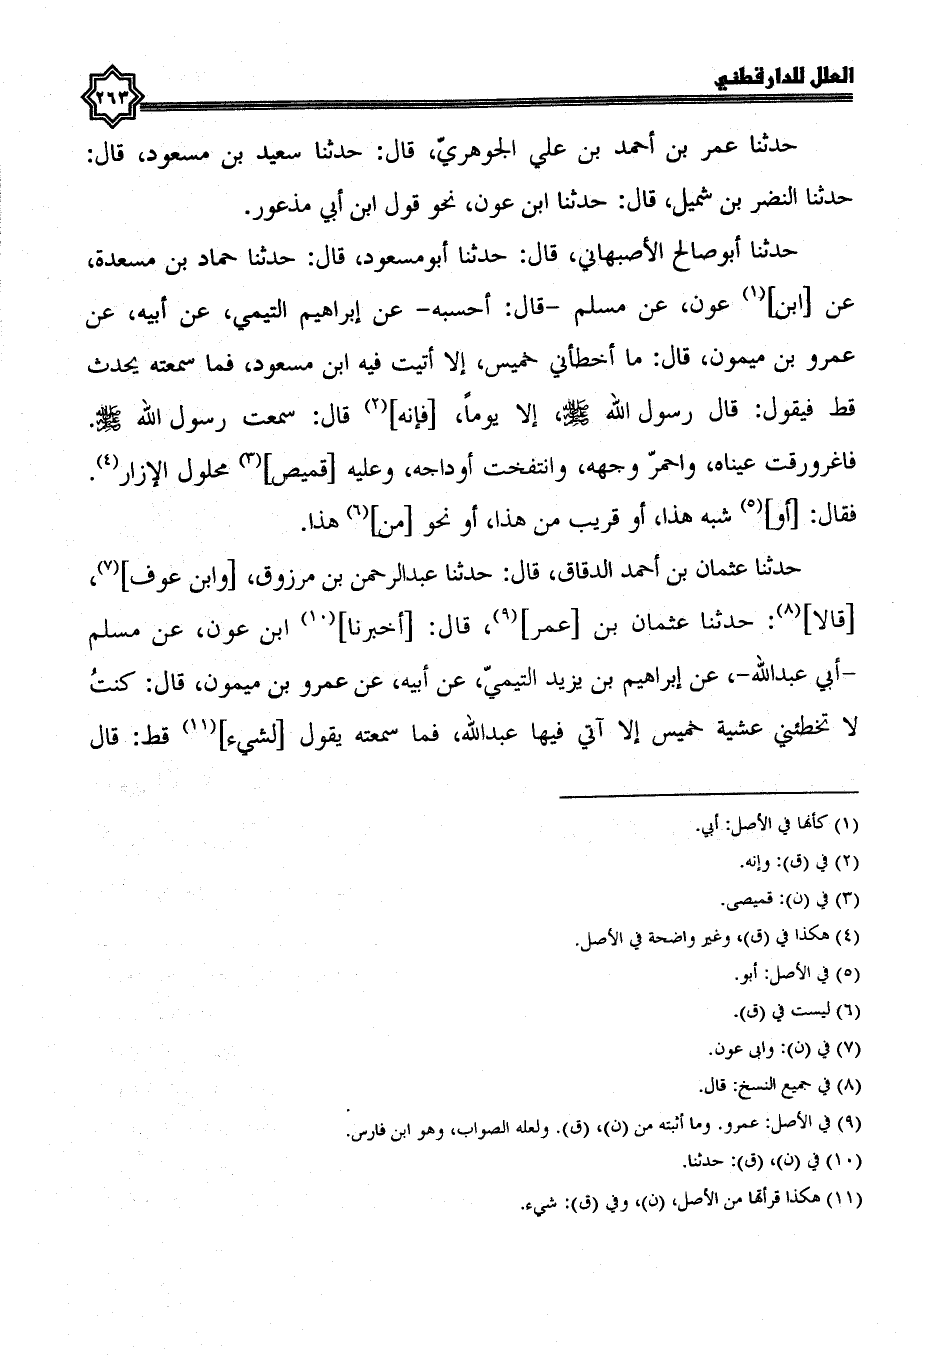 العلل للدارقطني
٢٦٣
حدثنا عمر بن أحمد بن علي الجوهريّ، قال: حدثنا سعيد بن مسعود، قال:
حدثنا النضر بن شميل، قال: حدثنا ابن عون، نحو قول ابن أبي مذعور.
حدثنا أبوصالح الأصبهاني، قال: حدثنا أبومسعود، قال: حدثنا حماد بن مسعدة،
عن [ابن](١) عون، عن مسلم -قال: أحسبه- عن إبراهيم التيمي، عن أبيه، عن
عمرو بن ميمون، قال: ما أخطأني خميس، إلا أتيت فيه ابن مسعود، فما سمعته يحدث
قط فيقول: قال رسول الله ﷺ، إلا يوماً، [فإنه](٢) قال: سمعت رسول الله ﷺ.
فاغرورقت عيناه، واحمرّ وجهه، وانتفخت أوداجه، وعليه [قميص](٣) محلول الإزار(٤).
فقال: [أو](٥) شبه هذا، أو قريب من هذا، أو نحو [من](٦) هذا.
حدثنا عثمان بن أحمد الدقاق، قال: حدثنا عبدالرحمن بن مرزوق، [وابن عوف](٧)،
[قالا](٨): حدثنا عثمان بن [عمر](٩)، قال: [أخبرنا](١٠) ابن عون، عن مسلم
-أبي عبدالله-، عن إبراهيم بن يزيد التيميّ، عن أبيه، عن عمرو بن ميمون، قال: كنتُ
لا تخطئني عشية خميس إلا آتي فيها عبدالله، فما سمعته يقول [لشيء](١١) قط: قال
(١) كأنها في الأصل: أبي.
(٢) في (ق): وإنه.
(٣) في (ن): قميصى.
(٤) هكذا في (ق)، وغير واضحة في الأصل.
(٥) في الأصل: أبو.
(٦) ليست في (ق).
(٧) في (ن): وابى عون.
(٨) في جميع النسخ: قال.
(٩) في الأصل: عمرو. وما أثبته من (ن)، (ق). ولعله الصواب، وهو ابن فارس.
(١٠) في (ن)، (ق): حدثنا.
(١١) هكذا قرأتها من الأصل، (ن)، وفي (ق): شيء.